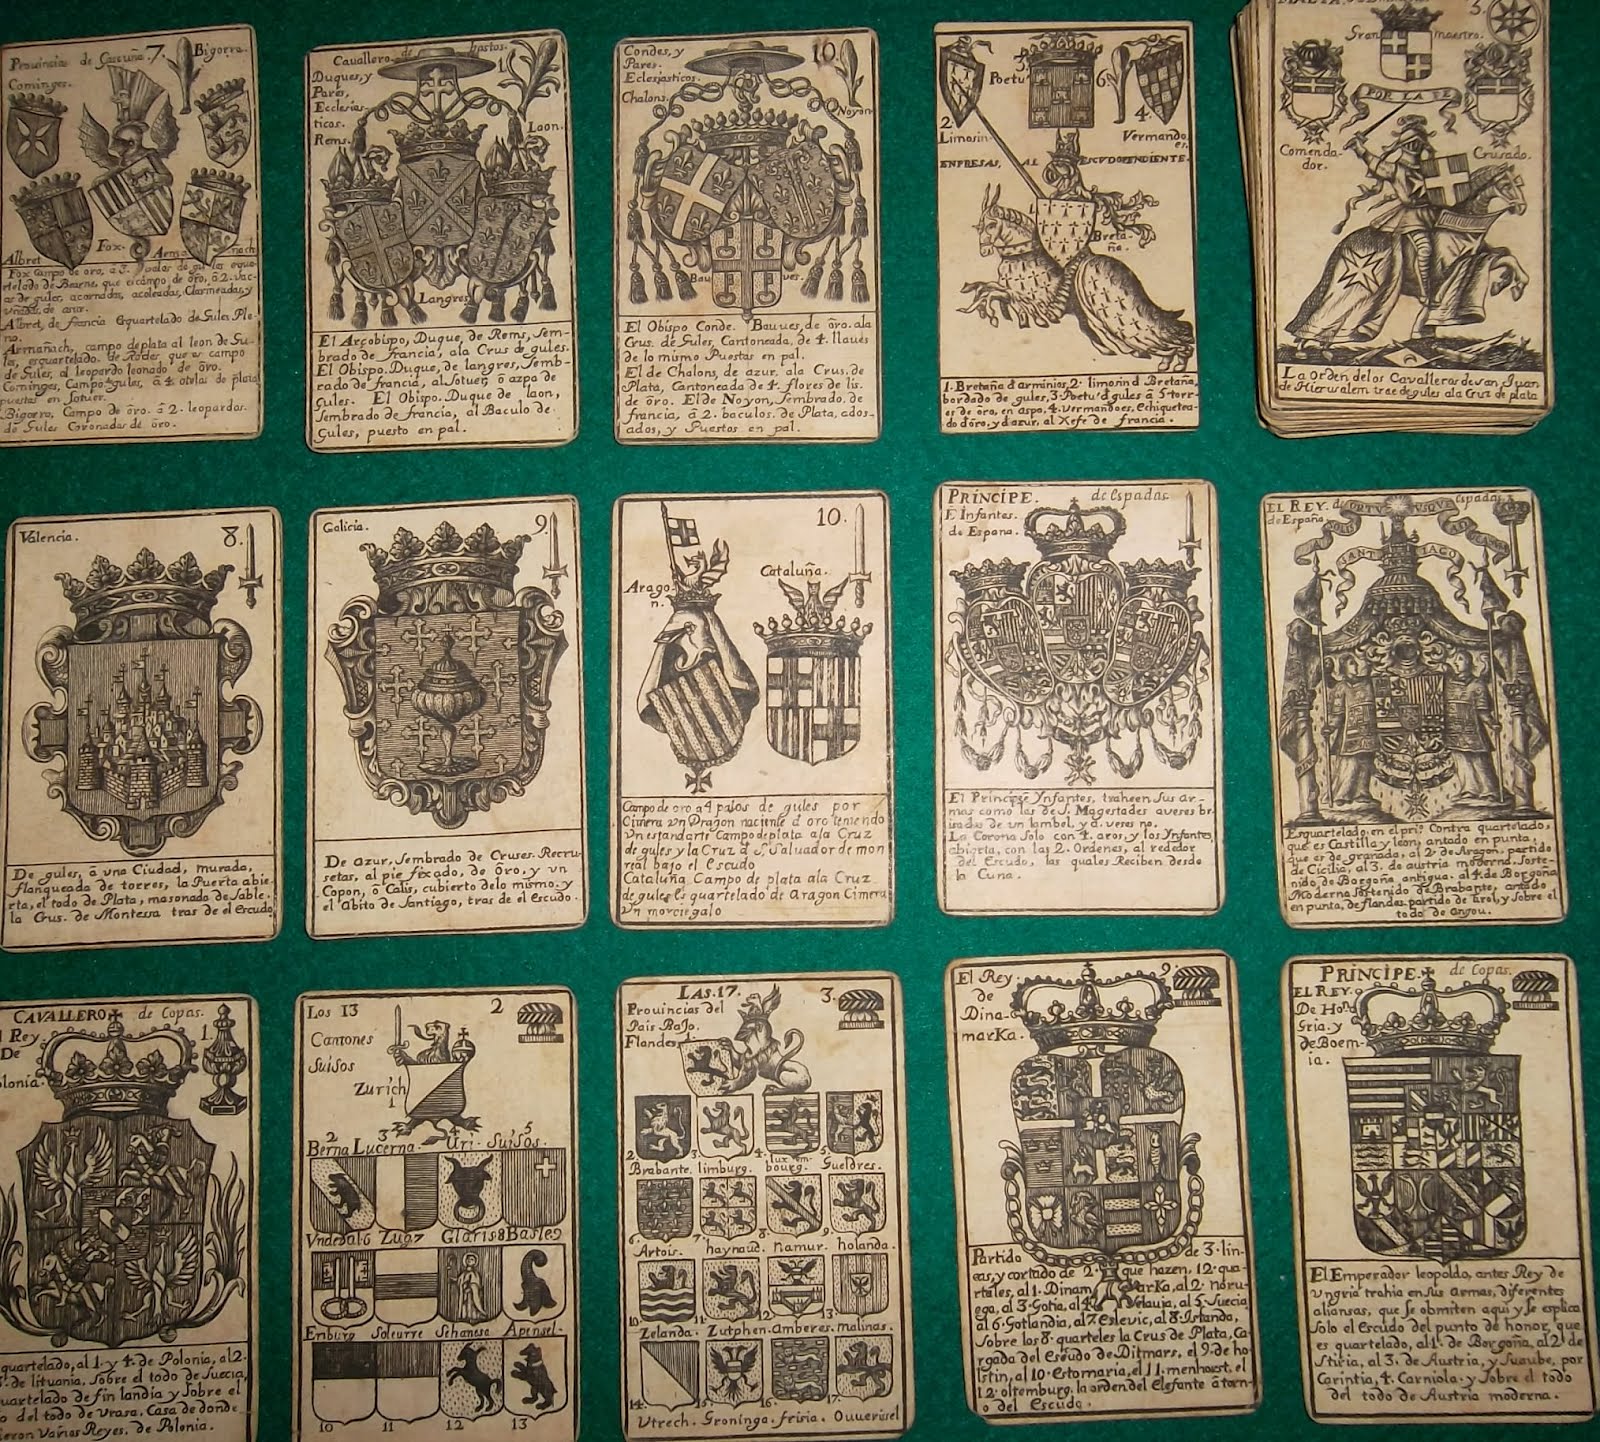 Provincias de Gascuña. 7. Bigorra.
Cominges.
Albret Fox. Armañach
Fox campo de oro, a 3. palos de gules esqua-
rtelado de Bearne, que es campo de oro, â 2. vac-
as de gules, acornadas, acoleadas, Clarmeadas, y
Albret, de francia Esquartelado de Gules Ple-
no.
Armañach, campo de plata al leon de Gu-
les, esquartelado de Rodes que es campo
de Gules, al leopardo leonado de oro.
Cominges, Campo gules, â 4. otelas de plata
puestas en Sotuer.
Bigorra, Campo de ôro. â 2. leopardos.
de Gules Coronadas de ôro.
Cavallero de bastos. 1.
Duques, y
Pares,
Ecclesias-
ticos.
Rems. Laon.
Langres
El Arçobispo, Duque, de Rems, Sem-
brado de francia, ala Crus de gules.
El Obispo. Duque, de langres, Semb-
rado de francia, al Sotuer, ô azpa de
Gules. El Obispo. Duque de laon,
Sembrado de francia, al Baculo de
Gules, puesto en pal.
Condes, y 10.
Pares.
Eclesiasticos.
Chalons. Noyon
Bau ves.
El Obispo Conde. Bauves, de ôro. ala
Crus. de Gules, Cantoneada, de 4. llaues
de lo mismo Puestas en pal.
El de Chalons, de azur, ala Crus, de
Plata, Cantoneada de 4. flores de lis.
de ôro. El de Noyon, Sembrado, de
francia, â 2. baculos, de Plata, ados-
ados, y Puestos en pal.
3. Poetu 6.
2. Limosin 4. Vermando
es.
ENPRESAS, AL ESCVDO PENDIENTE.
Breta-
ña.
1. Bretaña d'arminios, 2. limosin d Bretaña,
bordado de gules, 3. Poetu d gules â 5 torr-
es de ôro, en aspa, 4. vermandoes, Echiquetea-
do d'oro, y d'azur, al Xefe de francia.
MALTA. 3.
Gran maestro.
POR LA FE
Comenda-
dor. Crusado.
La Orden delos Cavalleros de san Juan
de Hierusalem trae de gules ala Cruz de plata
Valencia. 8.
De gules, â vna Ciudad, murada,
flanqueada de torres, la Puerta abie-
rta, el todo de Plata, masonado de Sable.
la Crus. de Montesa tras de el Escudo
Galicia. 9.
De azur, Sembrado de Cruses. Recru-
setas, al pie fixado, de ôro, y vn
Copon, ô Calis, cubierto delo mismo, y
el Abito de Santiago, tras de el Escudo.
10.
Arago-
n. Cataluña.
Campo de oro a 4 palos de gules por
Cimera vn Dragon naciente d oro teniendo
vn estandarte Campo de plata ala Cruz
de gules y la Cruz d S. Saluador de mon
real bajo el escudo
Cataluña Campo de plata ala Cruz
de gules es quartelado de Aragon Cimera
vn morciegalo
PRINCIPE. de Espadas.
E Infantes.
de Espana.
El Principe Ynfantes, traheen Sus ar-
mas como las de S. Magestades aveses br-
isadas de un lambel, y a. veses no.
La Corona Solo con 4. aros, y los Ynfantes,
abierta, con las 2. Ordenes, al rededor
del Escudo, las quales Reciben desde
la Cuna.
EL REY. de espadas
de España
SANTIAGO
Esquartelado, en el pri.º Contra quartelado,
que es Castilla y leon, antado en punta,
que es de granada, al 2. de Aragon, partido
de Cicilia, al 3. de austria moderna. Soste-
nido de Borgoña antigua. al 4. de Borgoña
Moderna Sostenido de Brabante, antado
en punta, de flandes, partido de tirol, y Sobre el
todo de anjou.
CAVALLERO de Copas.
El Rey 1.
De
Polonia.
quartelado, al 1. y 4. de Polonia, al 2.
3. de lituania, Sobre el todo de Suecia,
quartelado de fin landia y Sobre el
do del todo de Vrasa, Casa de donde
ieron Varios Reyes, de Polonia.
Los 13 2
Cantones
Suisos
Zurich
1
2 3 4 5
Berna Lucerna. Uri. Suisos.
Vndeual 6 Zug 7 Glaris 8 Basle 9
Enburg Soleurre Schanesa Apensel.
10 11 12 13
LAS. 17. 3.
Provincias del
Pais Bajo.
Flandes 1.
2. 3. 4. 5.
Brabante. limburg. luxem-
bourg. Gueldres.
6. 7. 8. 9.
Artois. haynaud. Namur. holanda.
10. 11. 12. 13.
Zelanda. Zutphen. Amberes. malinas.
14. 15. 16. 17.
Vtrech. Groninga. frisia. Ouuerisel
El Rey. 9.
de
Dina-
marKa.
Partido de 3. lin-
eas, y cortado de 2. que hazen. 12. qua-
rteles, al 1. DinamarKa, al 2. noru-
ega, al 3. Gotia, al 4. Velauja, al 5. Suecia,
al 6. Gotlandia, al 7. Eslevic, al 8. Islanda,
Sobre los 8. quarteles la Crus de Plata, Ca-
rgada del Escudo de Ditmars, el 9. de ho-
lstin, al 10. Estomaria, el 11. menhorst, el
12. oltemburg, la orden del Elefante â torn-
o del Escudo.
PRINCIPE. de Copas.
EL REY.
De Hon-
Gria. y
de Boem-
ia.
El Emperador leopoldo, antes Rey de
vngria trahia en Sus armas, diferentes
aliansas, que se obmiten aqui y se esplica
Solo el Escudo del punto de honor, que
es quartelado, al 1. de Borgoña, al 2. de
Stiria, al 3. de Austria, y Suaube, por
Carintia, 4. Carniola. y Sobre el todo
del todo de Austria moderna.